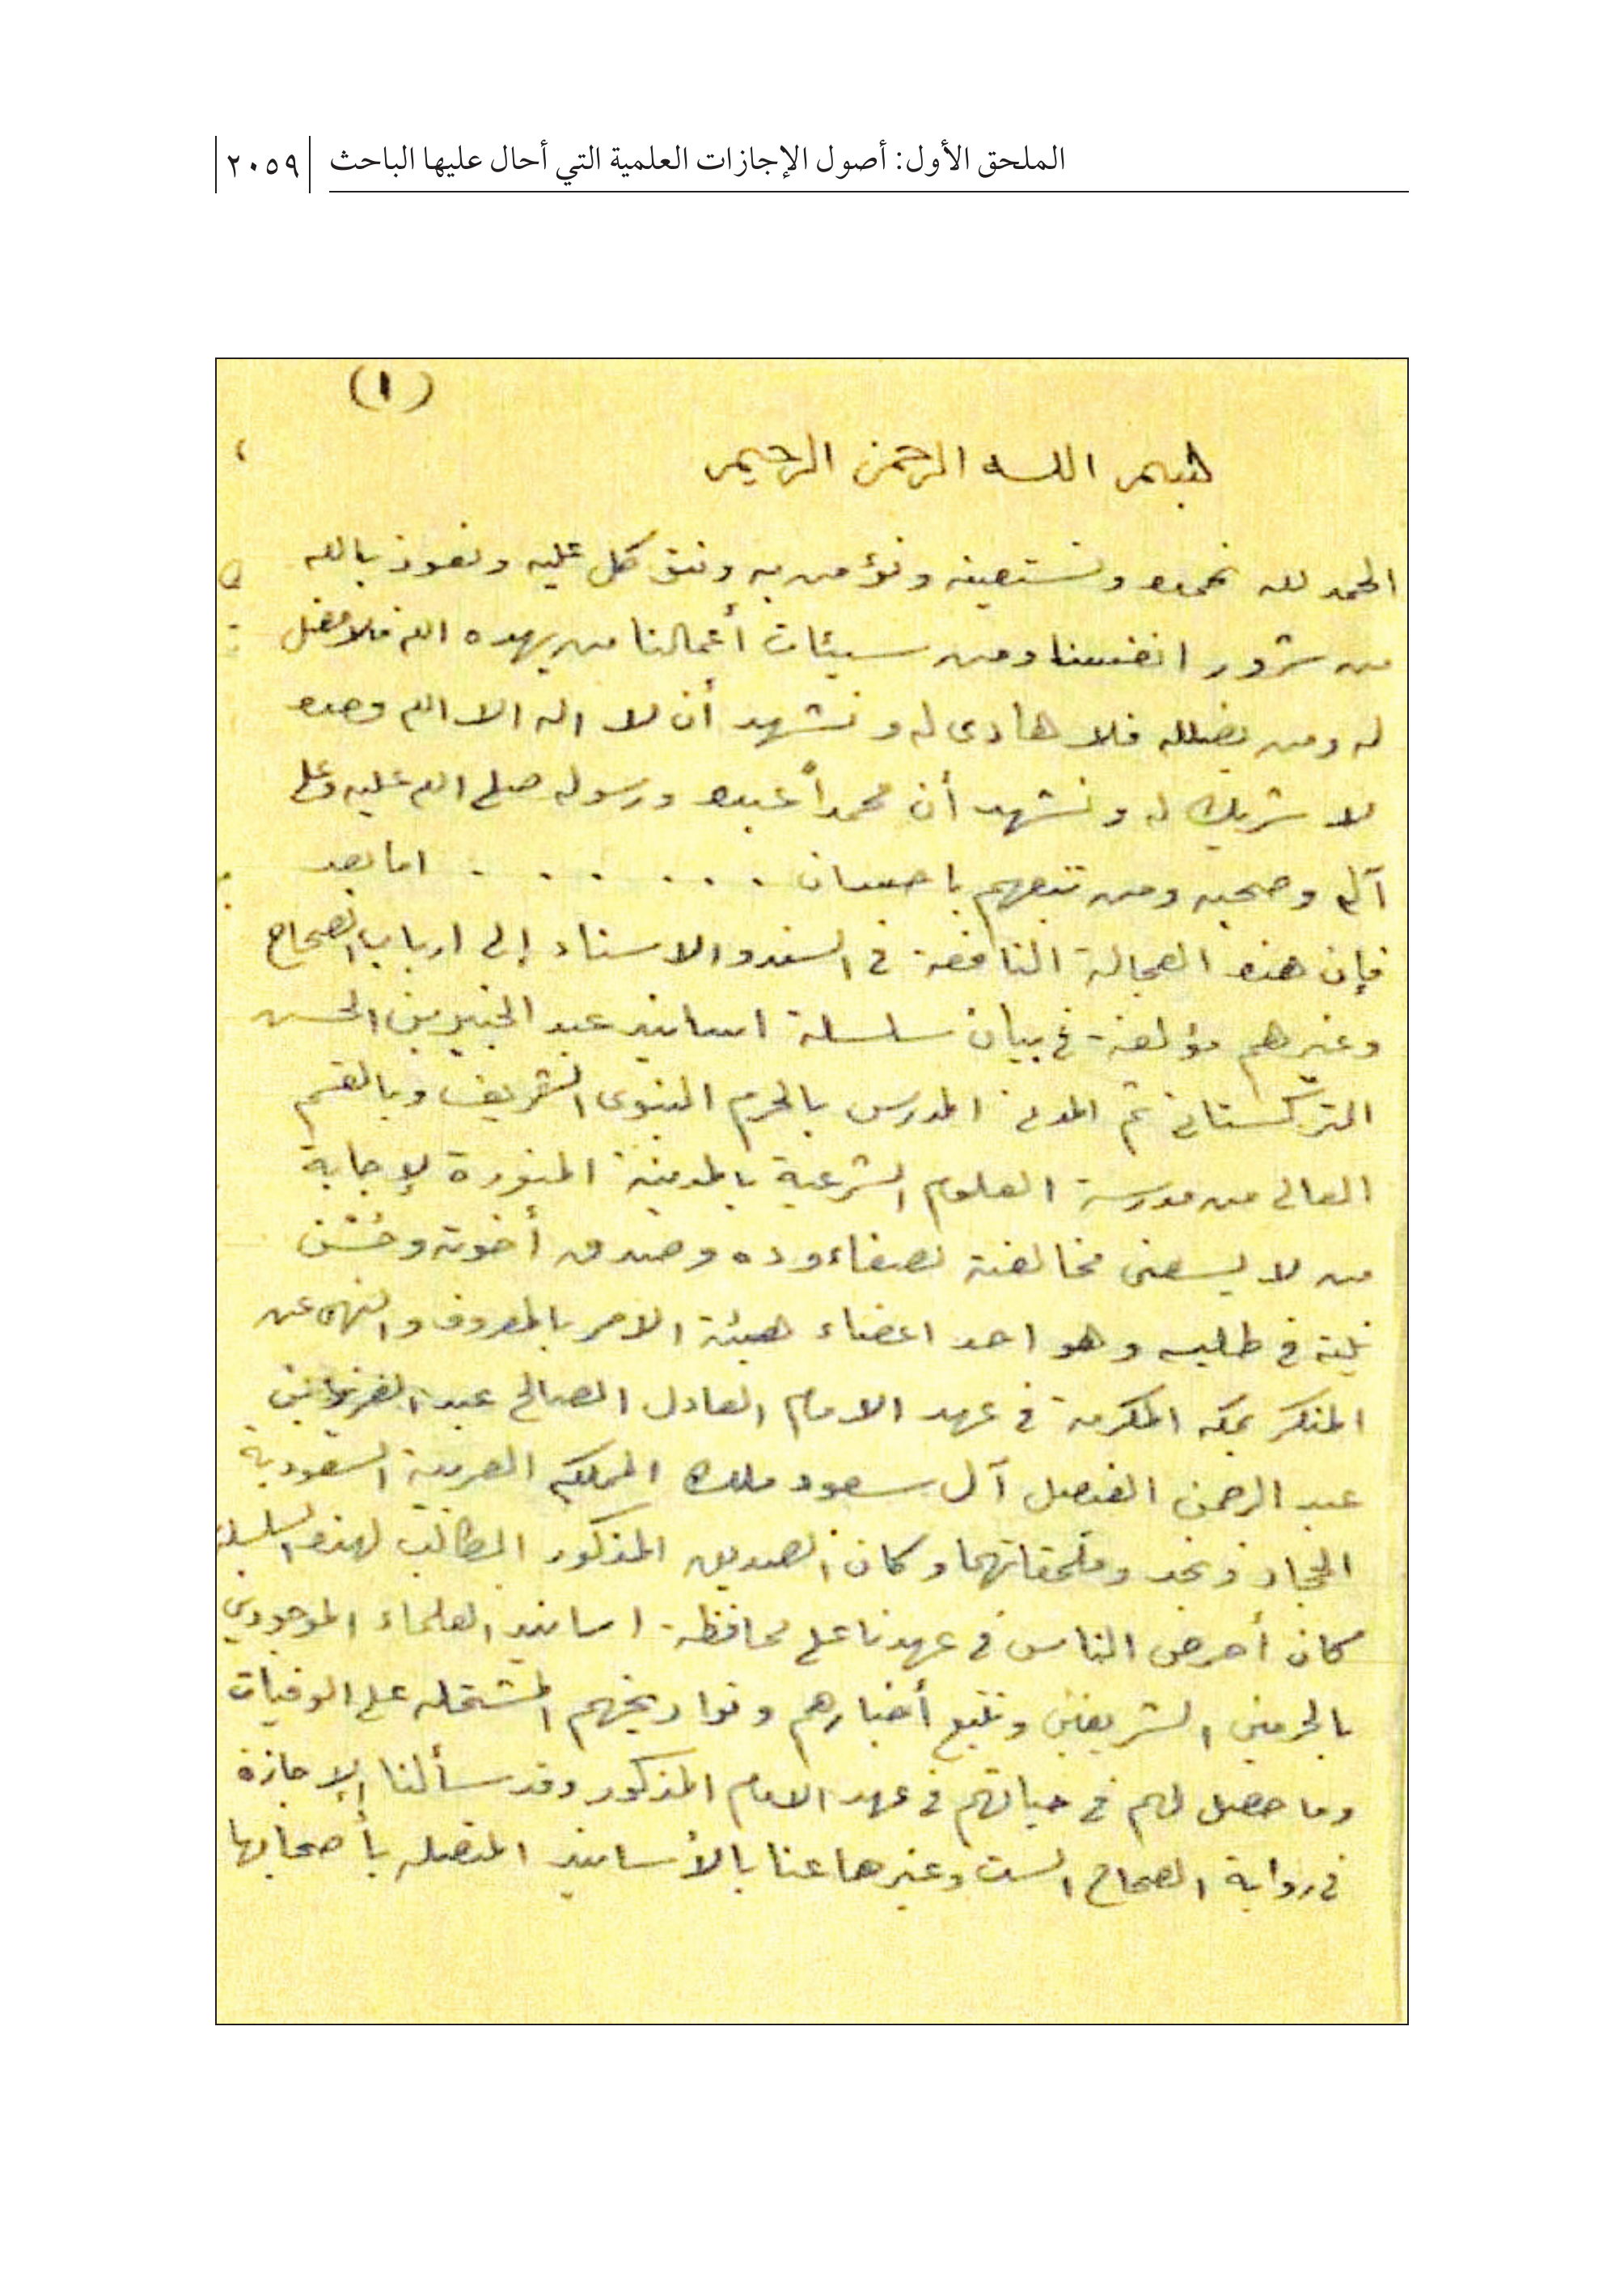 الملحق الأول: أصول الإجازات العلمية التي أحال عليها الباحث ٢٠٥٩
(١)
بسم الله الرحمن الرحيم
الحمد لله نحمده ونستعينه ونؤمن به ونتوكل عليه ونعوذ بالله
من شرور انفسنا ومن سيئات أعمالنا من يهده الله فلا مضل
له ومن يضلله فلا هادى له ونشهد أن لا اله الا الله وحده
لا شريك له ونشهد أن محمداً عبده ورسوله صلى الله عليه وعلى
آله وصحبه ومن تبعهم باحسان . . . . . . . اما بعد
فإن هذه العجالة النافعة في السند والاسناد إلى ارباب الصحاح
وغيرهم مؤلفة في بيان سلسلة اسانيد عبد الخبير بن الحسن
التركستاني ثم المدني المدرس بالحرم النبوى الشريف وبالقسم
العالى من مدرسة العلوم الشرعية بالمدينة المنورة لإجابة
من لا يسعنى مخالفته لصفاء وده وصدق أخوته وحُسْن
نيته في طلبه وهو احد اعضاء هيئة الامر بالمعروف والنهى عن
المنكر بمكه المكرمة في عهد الامام العادل الصالح عبد العزيز بن
عبد الرحمن الفيصل آل سعود ملك المملكه العربية السعودية
الحجاز ونجد وملحقاتهما وكان الصديق المذكور الطالب لهذه السلسلة
كان أحرص الناس في عهدنا على محافظة اسانيد العلماء الموجودين
بالحرمين الشريفين وتتبع أخبارهم وتواريخهم المشتمله على الوفيات
وما حصل لهم في حياتهم في عهد الامام المذكور وقد سألنا الإجازة
في رواية الصحاح الست وغيرها عنا بالأسانيد المتصله بأصحابها